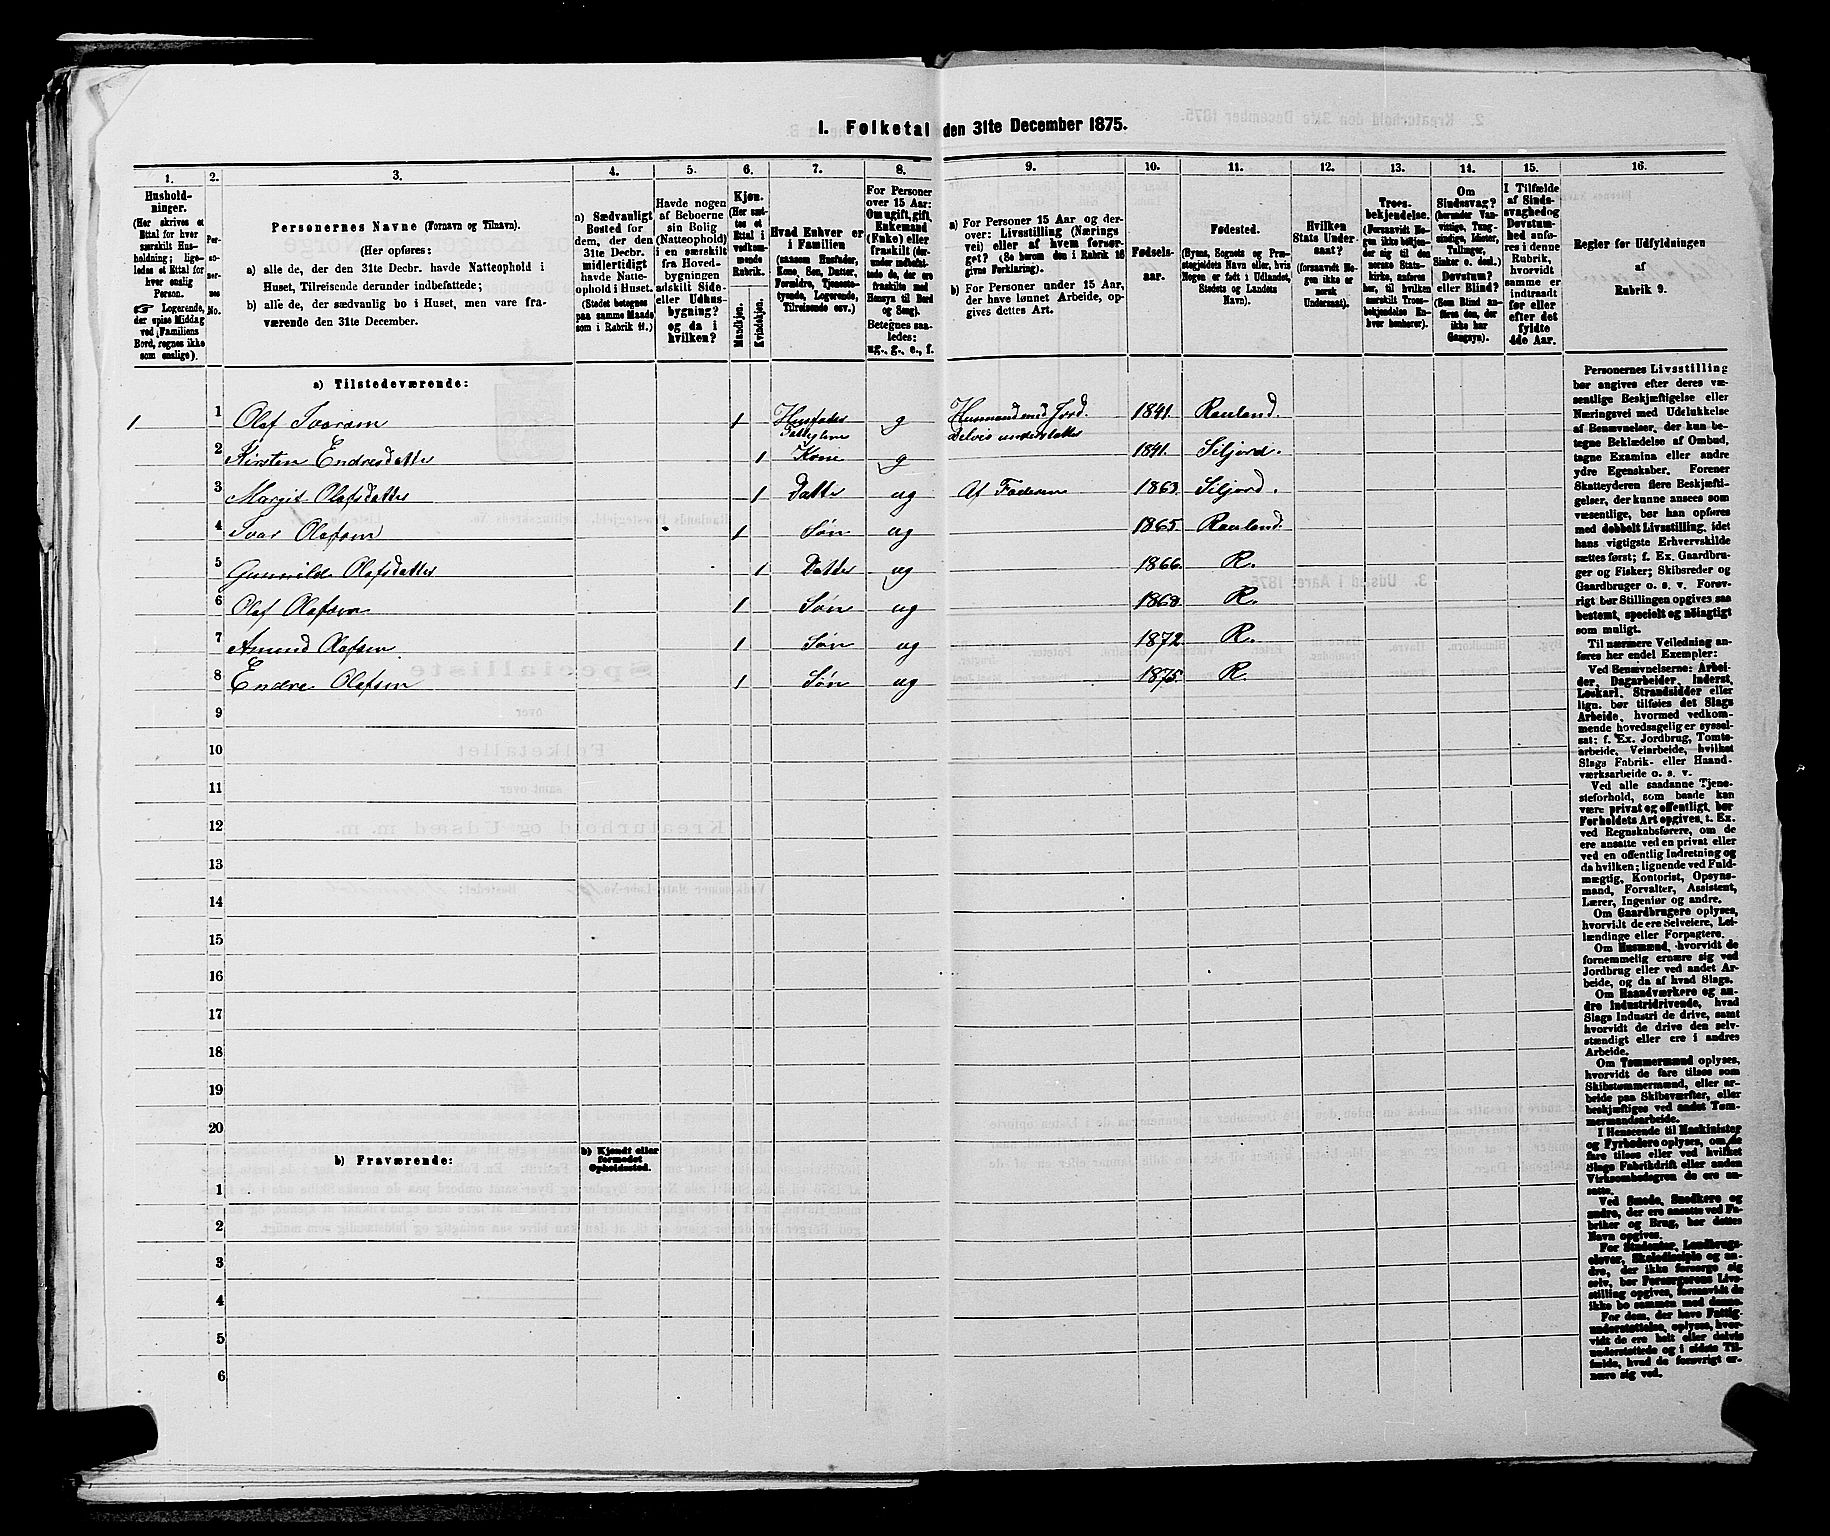 1. Folketal den 31te December 1875.
1. 2. 3. 4. 5. 6. 7. 8. 9. 10. 11. 12. 13. 14. 15. 16.
Hushold-
ninger.
(Her skrives et
Ettal for hver
særskilt Hus-
holdning; lige-
ledes et Ettal for
hver enslig
Person.
☞ Logerende,
der spise Middag
ved Familiens
Bord, regnes ikke
som enslige).
Per-
so-
ner-
nes
No.
Personernes Navne (Fornavn og Tilnavn).
(Her opføres:
a) alle de, der den 31te Decbr. havde Natteophold i
Huset, Tilreisende derunder indbefattede;
b) alle de, der sædvanlig bo i Huset, men vare fra-
værende den 31te December.
a) Sædvanligt
Bosted for
dem, der den
31te Decbr.
midlertidigt
havde Natte-
ophold i Huset.
(Stedet betegnes
paa samme Maade
som i Rubrik 11.)
Havde nogen
af Beboerne
sin Bolig
(Natteophold)
i en særskilt
fra Hoved-
bygningen
adskilt Side-
eller Udhus-
bygning?
og da i
hvilken?
Kjøn.
(Her sæt-
tes et
Ettal i
vedkom-
mende
Rubrik.
Mandkjøn.
Kvindekjøn.
Hvad Enhver er
i Familien
(saasom Husfader,
Kone, Søn, Datter,
Forældre, Tjeneste-
tyende, Logerende,
Tilreisende osv.)
For Personer
over 15 Aar:
Om ugift, gift,
Enkemand
(Enke) eller
fraskilt (der-
under indbefat-
tede de, der ere
fraskilte med
Hensyn til Bord
og Seng).
Betegnes saa-
ledes:
ug., g., e., f.
a) For Personer 15 Aar og der-
over: Livsstilling (Nærings
vei) eller af hvem forsør-
get? (Se herom den i Rubrik 16
givne Forklaring).
b) For Personer under 15 Aar,
der have lønnet Arbeide, op-
gives dettes Art.
Fødsels-
aar.
Fødested.
(Byens, Sognets og Præ-
stegjeldets Navn eller, hvis
Nogen er født i Udlandet,
Stedets og Landets
Navn).
Hvilken
Stats Under-
saat?
(forsaavidt No-
gen ikke er
norsk
Undersaat).
Troes-
bekjendelse.
(Forsaavidt No-
gen ikke bekjen-
der sig til den
norske Stats-
kirke, anføres
her, til hvilken
særskilt Troes-
bekjendelse En-
hver henhører).
Om
Sindssvag?
(herunder Van-
vittige, Tung-
sindige, Idioter,
Tullinger,
Sinker o. desl.)
Døvstum?
eller Blind?
(Som Blind an-
føres den, der
ikke har
Gangsyn).
I Tilfælde
af Sinds-
svaghed og
Døvstum-
hed anfø-
res i denne
Rubrik,
hvorvidt
samme er
indtraadt
før eller
efter det
fyldte
4de Aar.
Regler for Udfyldningen
af
Rubrik 9.
a) Tilstedeværende:
1 1 Olaf Ivarsen 1 Husfader g Husmand med Jord. 1841. Rauland.
Fattiglem Delvis understøttet
2 Kirsten Endresdatter 1 Kone g 1841. Siljord.
3 Margit Olafsdatter 1 Datter ug Af Faderen 1863. Siljord.
4 Ivar Olafsen 1 Søn ug 1865. Rauland.
5 Gunnilde Olafsdatter 1 Datter ug 1866. R.
6 Olaf Olafsen 1 Søn ug 1868. R.
7 Amund Olafsen. 1 Søn ug 1872. R.
8 Endre Olafsen 1 Søn ug 1875. R.
9
10
11
12
13
14
15
16
17
18
19
20
b) Fraværende:
b) Kjendt eller
formodet
Opholdssted.
1
2
3
4
5
6
Personernes Livsstilling
bør angives efter deres væ-
sentlige Beskjæftigelse eller
Næringsvei med Udelukkelse
af Benævnelser, der kun be-
tegne Beklædelse af Ombud,
tagne Examina eller andre
ydre Egenskaber. Forener
Skatteyderen flere Beskjæfti-
gelser, der kunne ansees som
væsentlige, bør han opføres
med dobbelt Livsstilling, idet
hans vigtigste Erhvervskilde
sættes først; f. Ex. Gaardbru-
ger og Fisker; Skibsreder og
Gaardbruger o. s. v. Forøv-
rigt bør Stillingen opgives saa
bestemt, specielt og nøiagtigt
som muligt.
Til nærmere Veiledning an-
føres her endel Exempler:
Ved Benævnelserne: Arbei-
der, Dagarbeider, Inderst,
Løskarl, Strandsidder eller
lign. bør tilføies det Slags
Arbeide, hvormed vedkom-
mende hovedsagelig er syssel-
sat; f. Ex. Jordbrug, Tomte-
arbeide, Veiarbeide, hvilket
Slags Fabrik- eller Haand-
værksarbeide o. s. v.
Ved alle saadanne Tjene-
steforhold, som baade kan
være privat og offentligt, bør
Forholdets Art opgives, t. Ex.
ved Regnskabsførere, om de
ere ansatte ved en privat eller
ved en offentlig Indretning og
da hvilken; lignende ved Fuld-
mægtig, Kontorist, Opsyns-
mand, Forvalter, Assistent,
Lærer, Ingeniør og andre.
Om Gaardbrugere oplyses,
hvorvidt de ere Selveiere, Lei-
lændinge eller Forpagtere.
Om Husmænd, hvorvidt de
fornemmelig ernære sig ved
Jordbrug eller ved andet Ar-
beide, og da af hvad Slags.
Om Haandværkere og an-
dre Industridrivende, hvad
Slags Industri de drive, samt
hvorvidt de drive den selv-
stændigt eller ere i andres
Arbeide.
Om Tømmermænd oplyses,
hvorvidt de fare tilsøs som
Skibstømmermænd, eller ar-
beide paa Skibsværfter, eller
beskjæftiges ved andet Tøm-
mermandsarbeide.
I Henseende til Maskinister
og Fyrbødere oplyses, om de
fare tilsøs eller ved hvilket
Slags Fabrikdrift eller anden
Virksomhedsgren de ere an-
satte.
Ved Smede, Snedkere og
andre, der ere ansatte ved Fa-
briker og Brug, bør dettes
Navn opgives.
For Studenter, Landbrugs-
elever, Skoledisciple og an-
dre, der ikke forsørge sig
selv, bør Forsørgerens Livs-
stilling opgives, forsaavidt de
ikke bo sammen med denne.
For dem, der have Fattig-
understøttelse, oplyses, hvor-
vidt de ere helt eller delvis
understøttede og i sidste Til-
fælde, hvad de forøvrigt er-
nære sig ved.